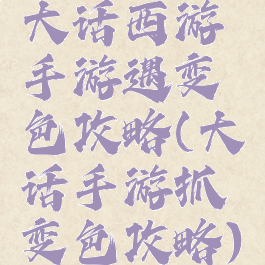 大话西游
手游遇变
色攻略(大
话手游抓
变色攻略)